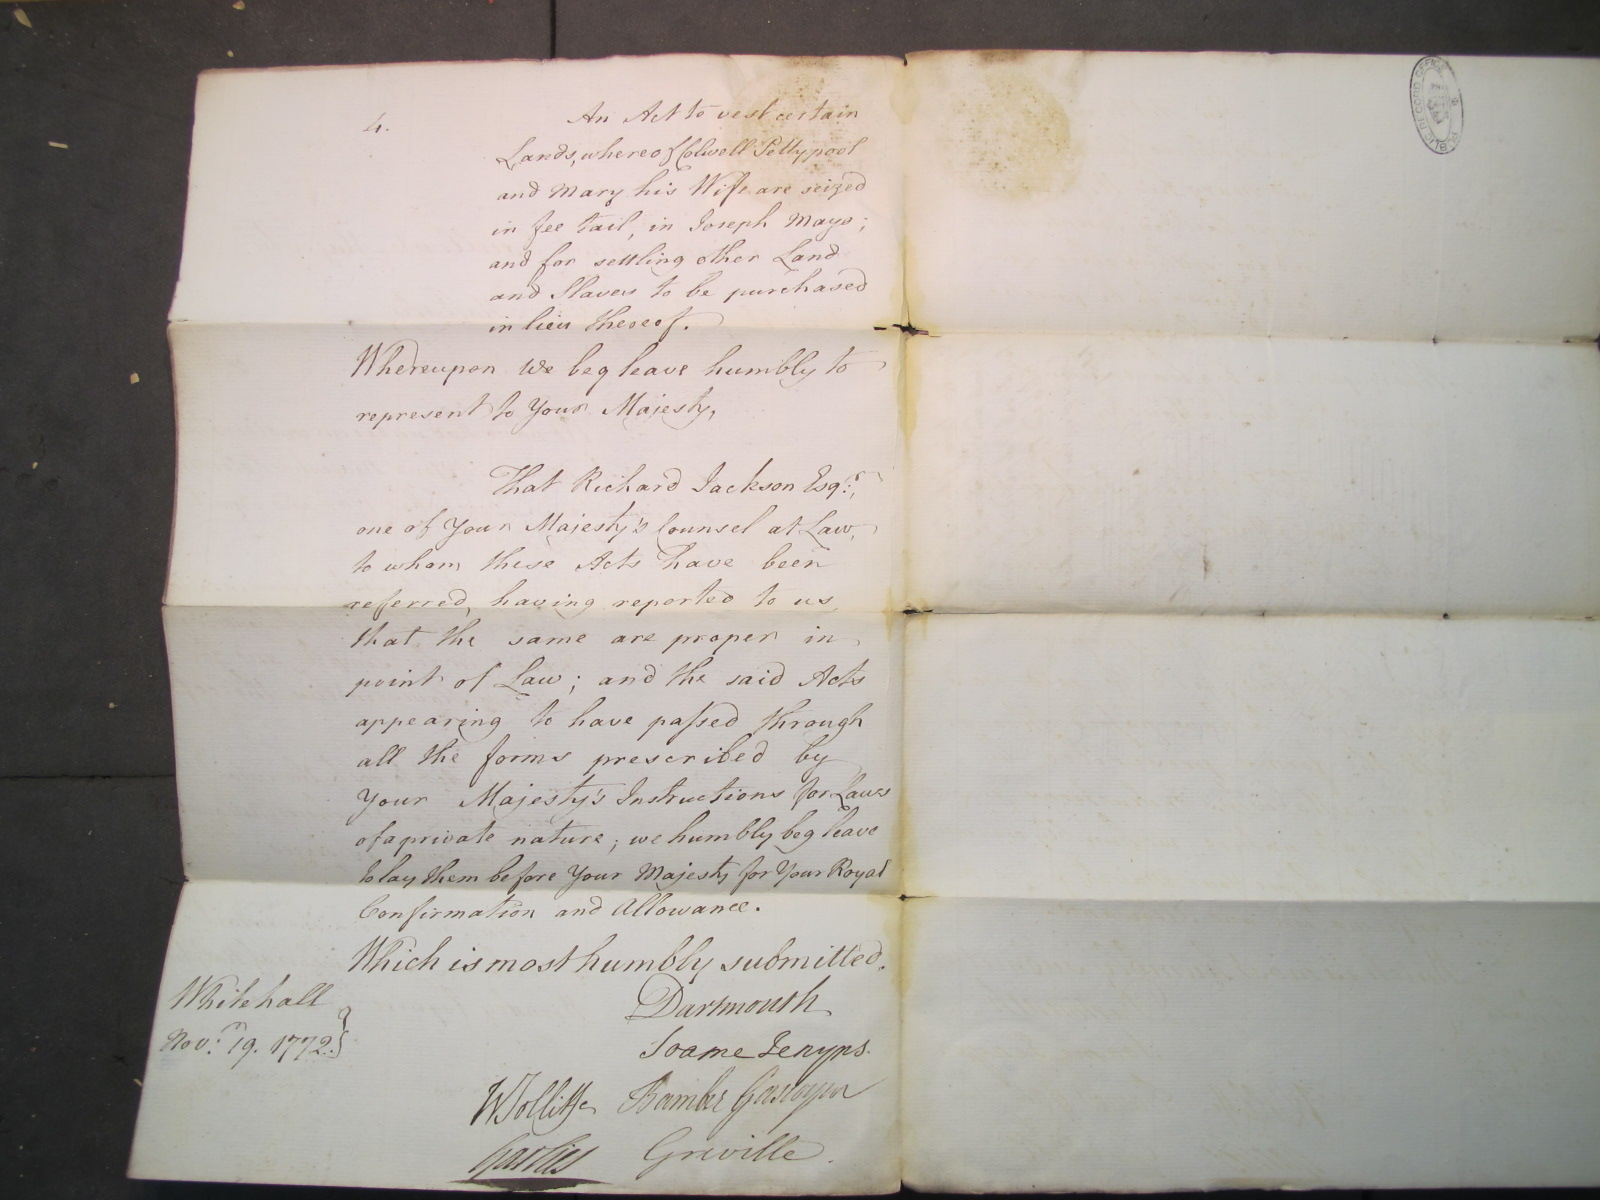 4.
An Act to vest certain
Lands, whereof Colwell Pettypool
and Mary his Wife are seized
in fee tail, in Joseph Mayo;
and for settling other Land
and Slaves to be purchased
in lieu thereof.
Whereupon we beg leave humbly to
represent to Your Majesty,
That Richard Jackson Esqr.,
one of Your Majesty's Counsel at Law,
to whom these Acts have been
referred, having reported to us,
that the same are proper in
point of Law; and the said Acts
appearing to have paſsed through
all the forms prescribed by
Your Majesty's Instructions for Laws
of a private nature; we humbly beg leave
to lay them before Your Majesty for Your Royal
Confirmation and Allowance.
Which is most humbly submitted.
Whitehall
Novr. 19. 1772.
Dartmouth
Soame Jenyns.
W Jolliffe Bamber Gascoyne
Garlies Greville.
PUBLIC RECORD OFFICE